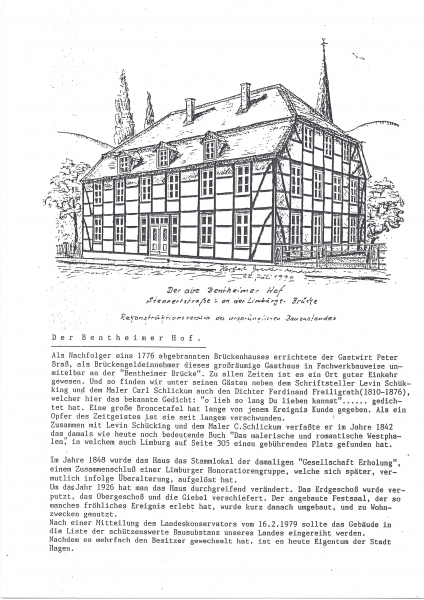 22. Juli 1990
Der alte Bentheimer Hof
Stennertstraße 2 an der Limburger Brücke
Rekonstruktionsversuch des ursprünglichen Bauzustandes
Der Bentheimer Hof.
Als Nachfolger eins 1776 abgebrannten Brückenhauses errichtete der Gastwirt Peter
Braß, als Brückengeldeinnehmer dieses großräumige Gasthaus in Fachwerkbauweise un-
mitelbar an der "Bentheimer Brücke". Zu allen Zeiten ist es ein Ort guter Einkehr
gewesen. Und so finden wir unter seinen Gästen neben dem Schriftsteller Levin Schük-
king und dem Maler Carl Schlickum auch den Dichter Ferdinand Freiligrath(1810-1876),
welcher hier das bekannte Gedicht: "o lieb so lang Du lieben kannst"...... gedich-
tet hat. Eine große Broncetafel hat lange von jenem Ereignis Kunde gegeben. Als ein
Opfer des Zeitgeistes ist sie seit langem verschwunden.
Zusammen mit Levin Schücking und dem Maler C.Schlickum verfaßte er im Jahre 1842
das damals wie heute noch bedeutende Buch "Das malerische und romantische Westpha-
len," in welchem auch Limburg auf Seite 305 einen gebührenden Platz gefunden hat.
Im Jahre 1848 wurde das Haus das Stammlokal der damaligen "Gesellschaft Erholung",
einem Zusammenschluß einer Limburger Honoratiorengruppe, welche sich später, ver-
mutlich infolge Überalterung, aufgelöst hat.
Um das Jahr 1926 hat man das Haus durchgreifend verändert. Das Erdgeschoß wurde ver-
putzt, das Obergeschoß und die Giebel verschiefert. Der angebaute Festsaal, der so
manches fröhliches Ereignis erlebt hat, wurde kurz danach umgebaut, und zu Wohn-
zwecken genutzt.
Nach einer Mitteilung des Landeskonservators vom 16.2.1979 sollte das Gebäude in
die Liste der schützenswerte Bausubstanz unseres Landes eingereiht werden.
Nachdem es mehrfach den Besitzer gewechselt hat. ist es heute Eigentum der Stadt
Hagen.